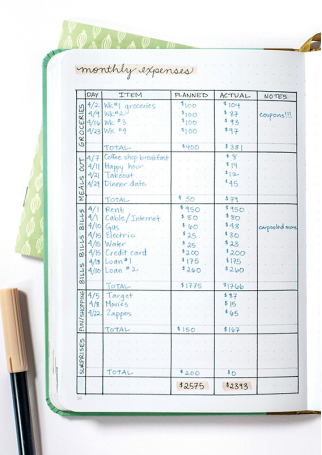 monthly expenses
DAY ITEM PLANNED ACTUAL NOTES
GROCERIES
4/2 Wk #1 groceries $100 $104
4/9 Wk #2 $100 $87 coupons!!!
4/16 Wk #3 $100 $93
4/23 Wk #4 $100 $97
TOTAL $400 $381
MEALS OUT
4/7 Coffee shop breakfast $8
4/11 Happy hour $14
4/21 Takeout $12
4/29 Dinner date $45
TOTAL $50 $79
BILLS BILLS BILLS BILLS
4/1 Rent $950 $950
4/1 Cable/Internet $80 $80
4/10 Gas $60 $48 carpooled
4/15 Electric $25 $30
4/15 Water $25 $23
4/15 Credit card $200 $200
4/18 Loan #1 $175 $175
4/20 Loan #2 $260 $260
TOTAL $1775 $1766
FUN/SHOPPING
4/5 Target $87
4/8 Movies $15
4/22 Zappos $65
TOTAL $150 $167
SURPRISES
TOTAL $200 $0
$2575 $2393